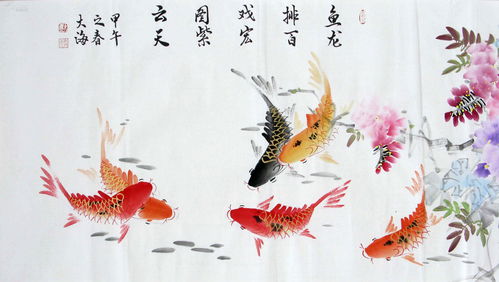 鱼龙
排百
戏宏
图紫
云天
甲午
之春
大海